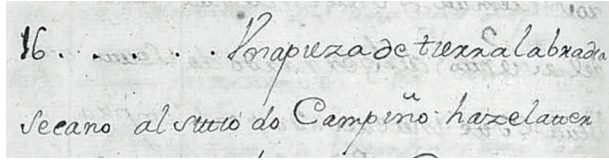 16 . . . . . . . Vnapieza de tierra labradia
secano al sitio do Campiño hazelauer